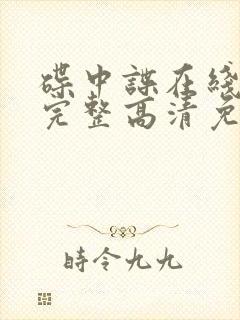 碟中諜在綫
完整高清免
時令九九